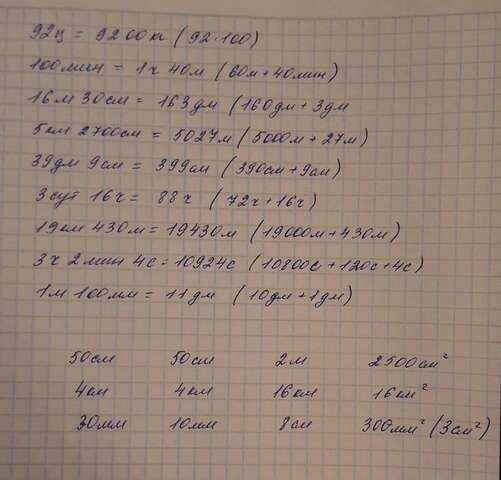 92ц = 9200кг (92·100)
100мин = 1ч 40м (60м+40мин)
16м 30см = 163дм (160дм+3дм
5км 2700см = 5027м (5000м+27м)
39дм 9см = 399см (390см+9см)
3сут 16ч = 88ч (72ч+16ч)
19км 430м = 19430м (19000м+430м)
3ч 2мин 4с = 10924с (10800с+120с+4с)
1м 100мм = 11дм (10дм+1дм)
50см 50см 2м 2500см²
4км 4км 16км 16км²
30мм 10мм 8см 300мм² (3см²)